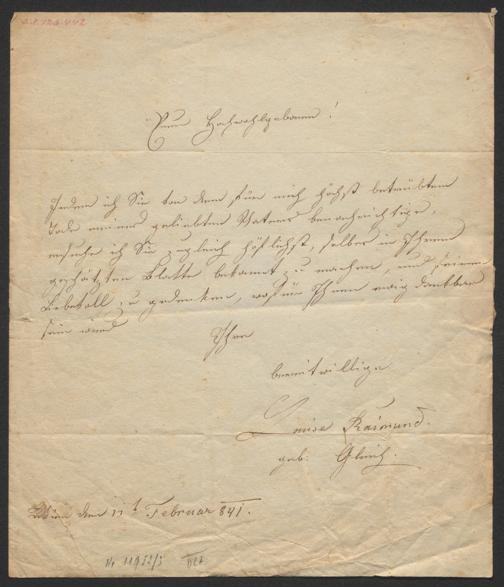 Euer Hochwohlgeboren!
Indem ich Sie von dem für mich höchst betrübten
Tode meines geliebten Vaters benachrichtige,
ersuche ich Sie zugleich höflichst, selben in Ihrem
geschätzten Blatte bekannt zu machen, und seiner
liebevoll zu gedenken, wofür Ihnen ewig dankbar
sein wird
Ihre
bereitwillige
Louise Raimund.
geb. Gleich.
Wien den 11t Februar 841.